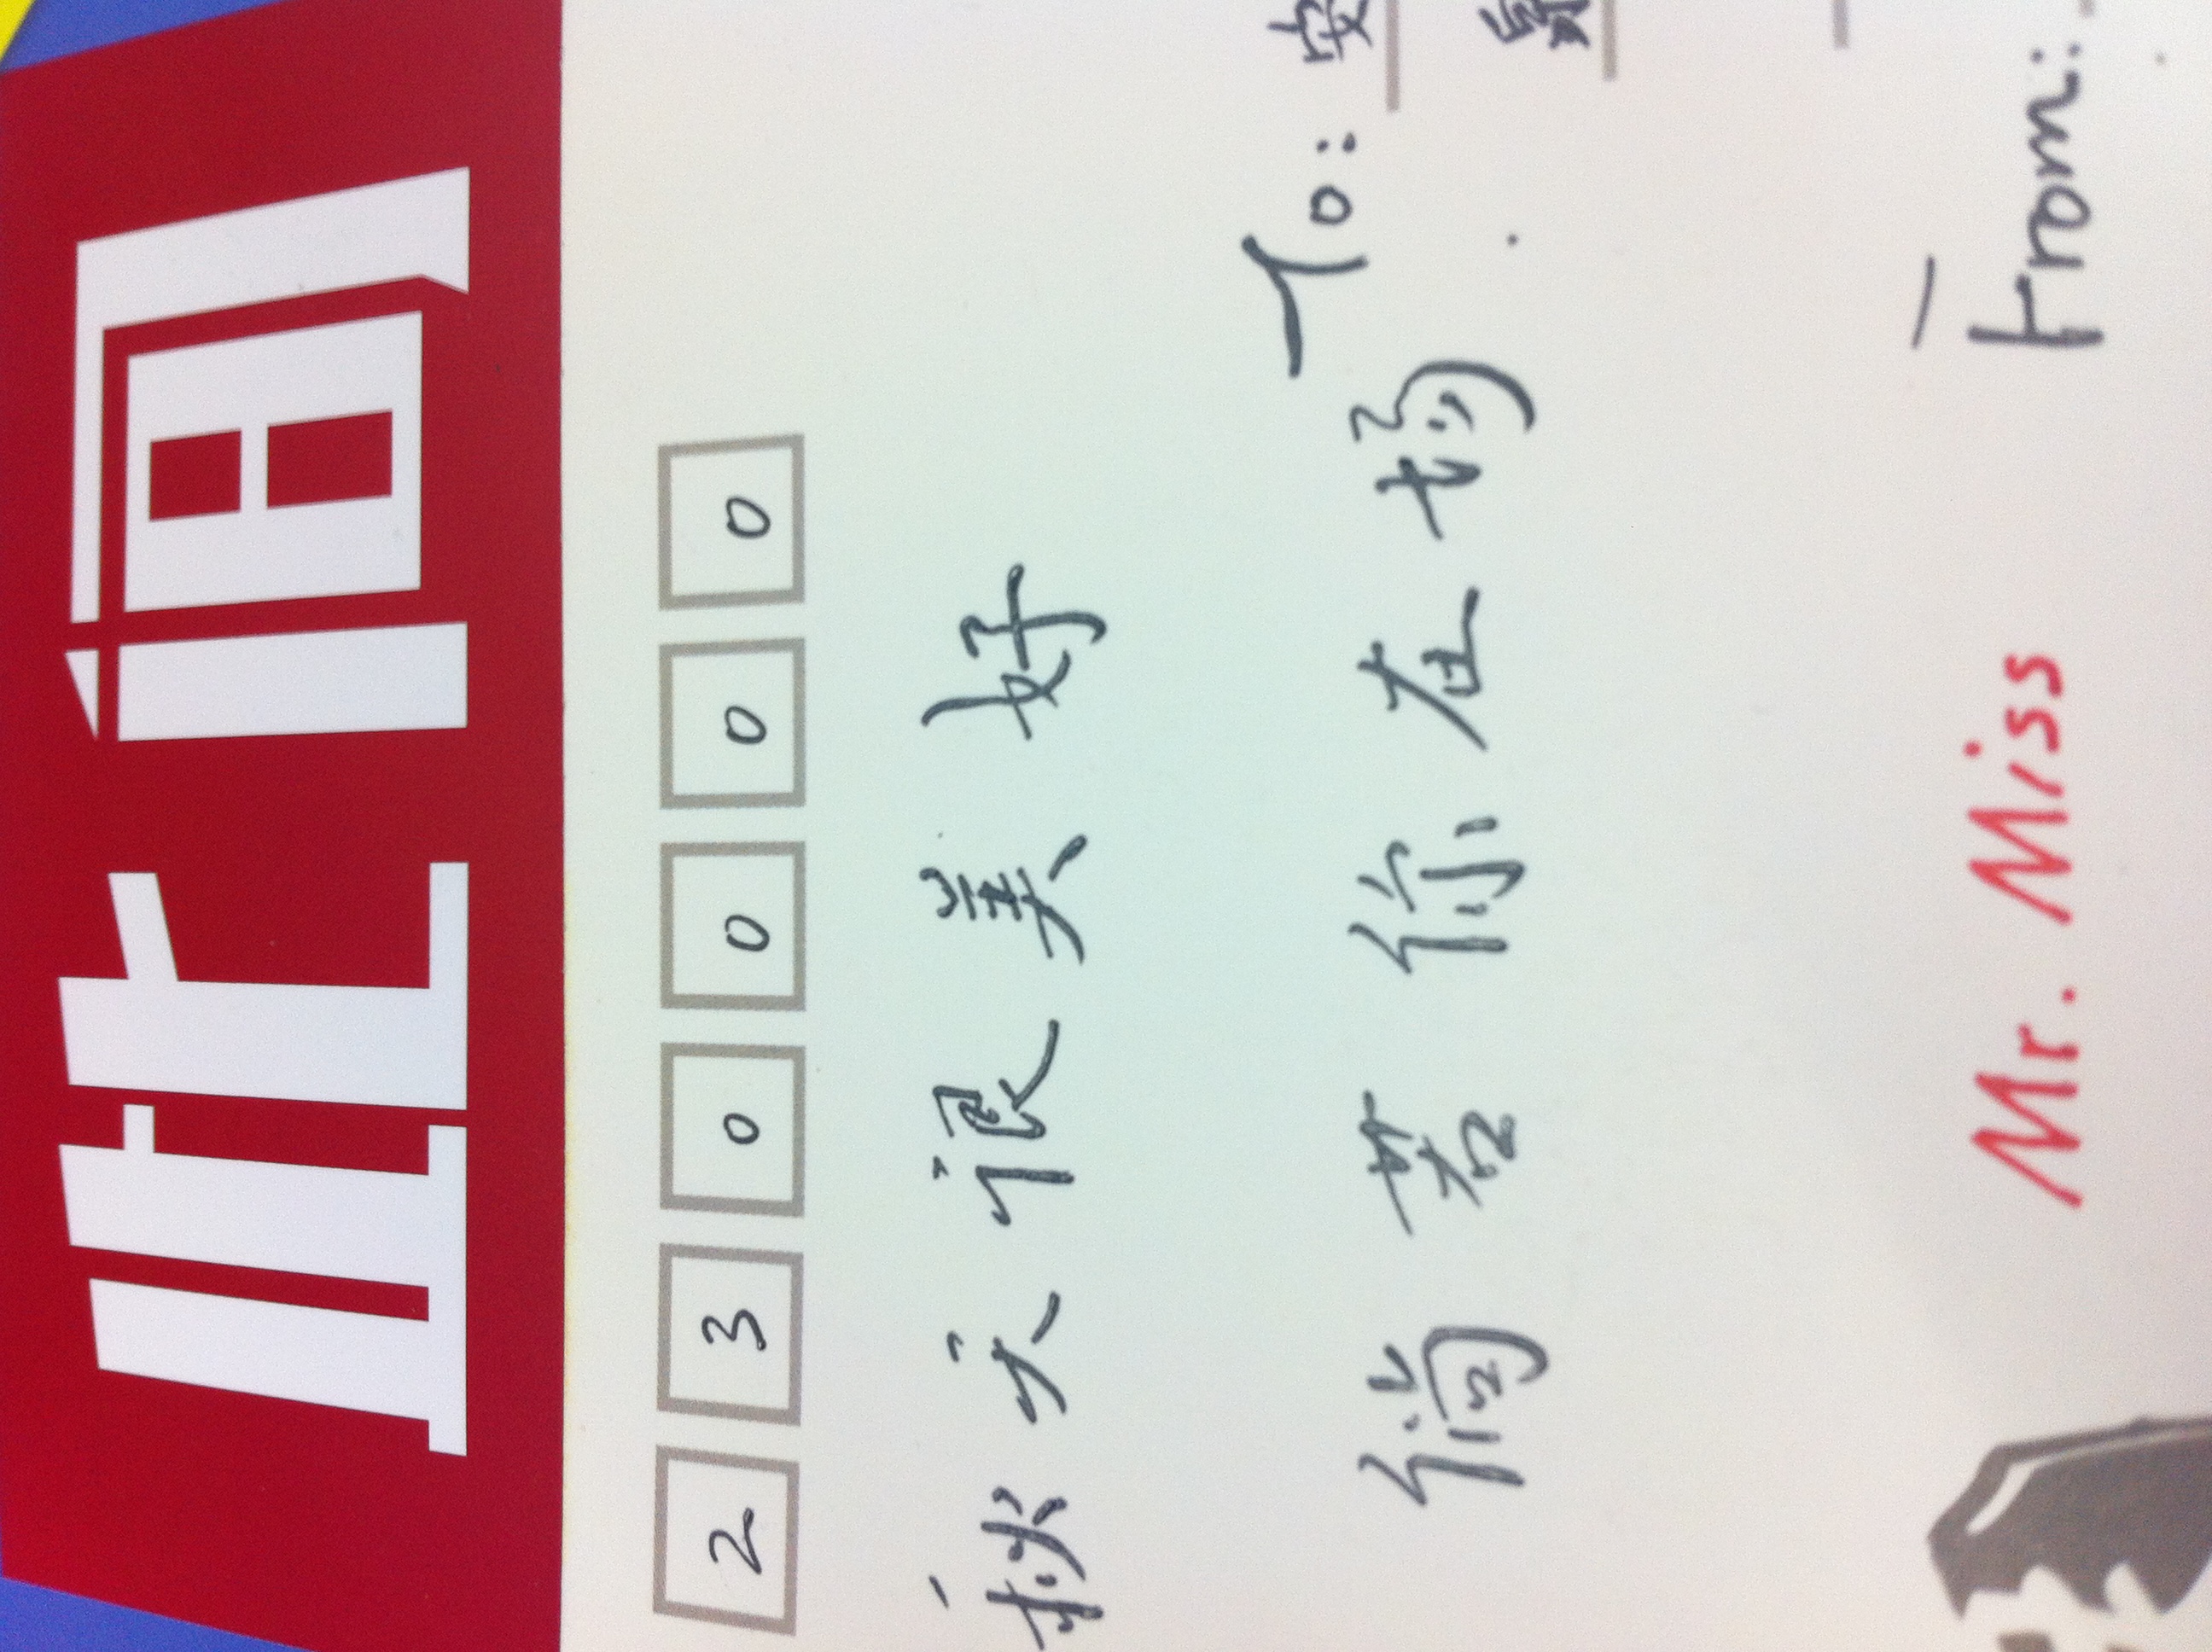 此间
230000
秋天很美好
倘若你在场.
To: 安
Mr. Miss
From: